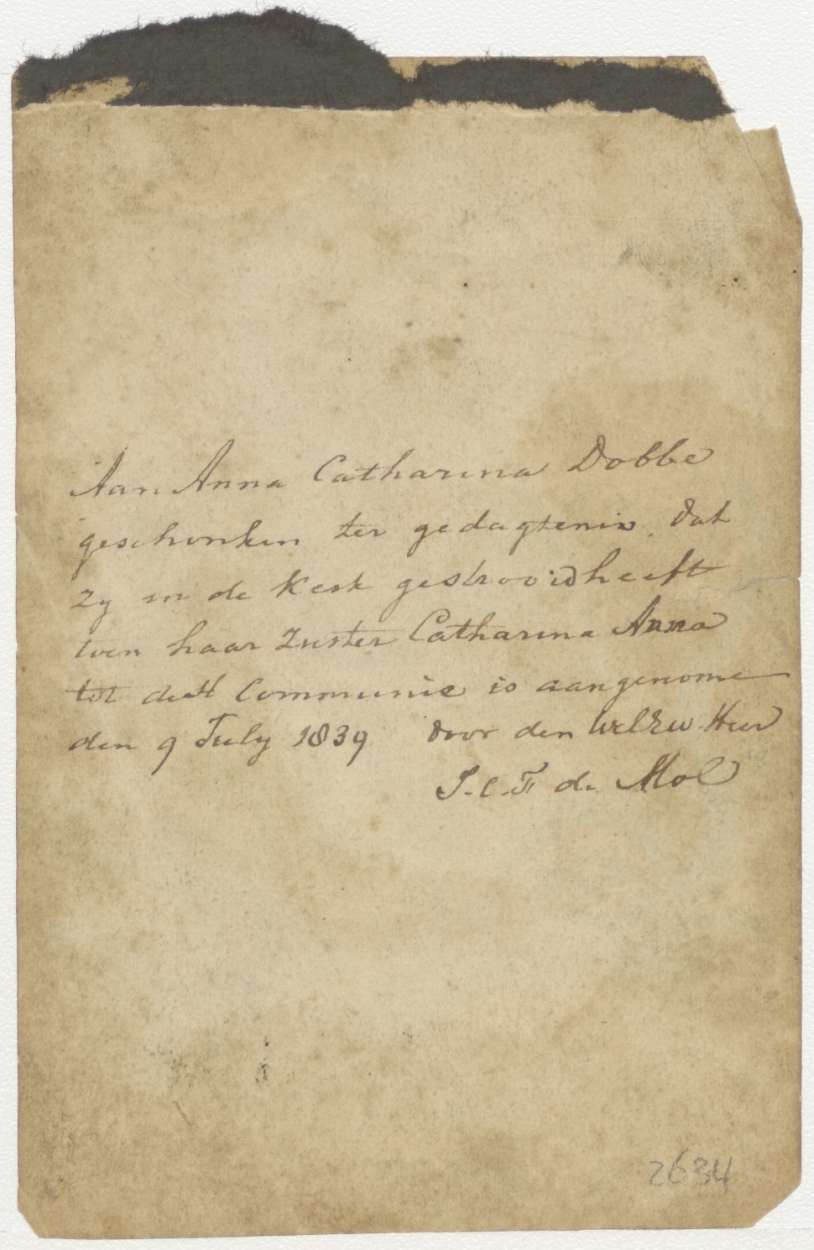 Aan Anna Catharina Dobbe
geschonken ter gedagtenis, dat
zy in de Kerk gestrooid heeft
toen haar Zuster Catharina Anna
tot de H Communie is aangenome
den 9 July 1839 door den WelEw Heer
J. C. F. de Mol
2634